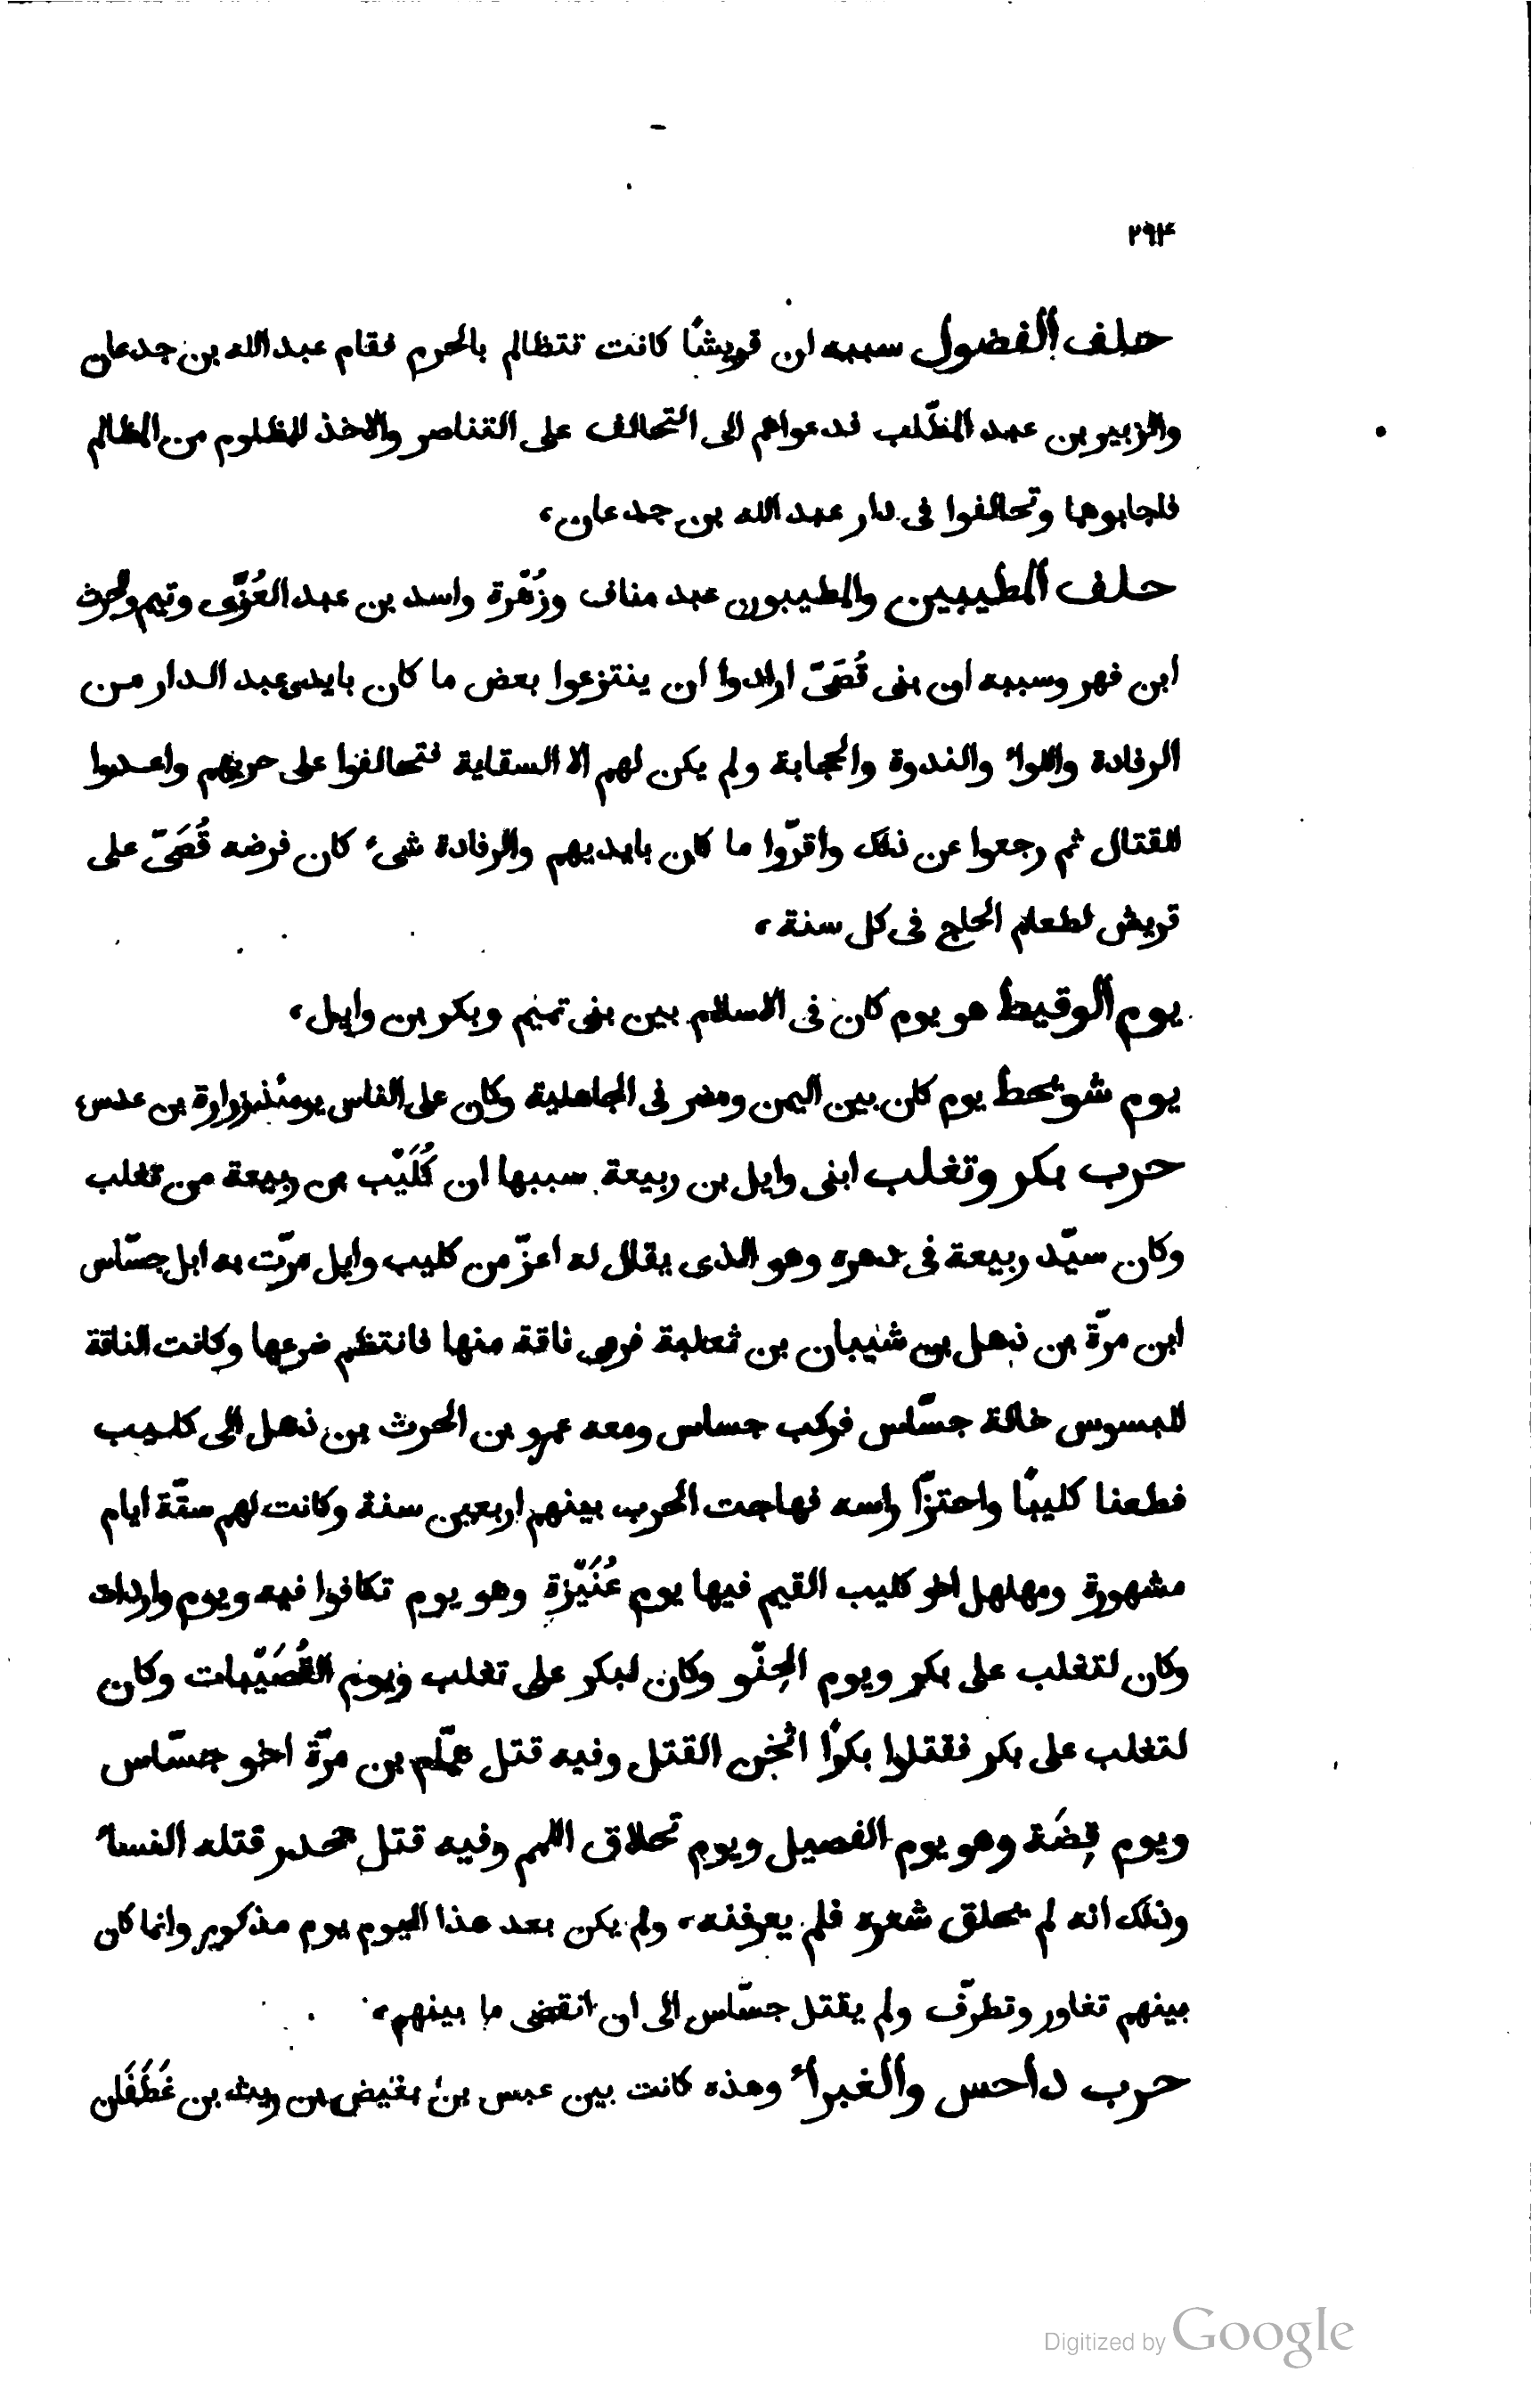 ٢٩۴
حلف الفضول سببه ان قريشًا كانت تتظالم بالحرم فقام عبد الله بن جدعان
والزبير بن عبد المطّلب فدعواهم الى التحالف على التناصر والاخذ للمظلوم من الظالم
فاجابوهما وتحالفوا فى دار عبد الله بن جدعان،
حلف المطيبين والمطيبون عبد مناف وزُهْرة واسد بن عبد العُزَّى وتيم والحرث
ابن فهر وسببه ان بنى قُصَىّ ارادوا ان ينتزعوا بعض ما كان بايدى عبد الدار من
الرفادة واللواء والندوة والحجابة ولم يكن لهم الا السقاية فتحالفوا على حربهم واعدوا
للقتال ثم رجعوا عن ذلك واقرّوا ما كان بايديهم والرفادة شىء كان فرضه قُصَىّ على
قريش لطعام الحاج فى كل سنة،
يوم الوقيط هو يوم كان فى الاسلام بين بنى تميم وبكر بن وايل،
يوم شوَيحط يوم كان بين اليمن ومضر فى الجاهلية وكان على الناس يومئذ زرارة بن عدس،
حرب بكر وتغلب ابنى وايل بن ربيعة سببها ان كُلَيْب بن ربيعة من تغلب
وكان سيّد ربيعة فى دهره وهو الذى يقال له اعزّ من كليب وايل مرّت به ابل جسّاس
ابن مرّة بن ذهل بن شيبان بن ثعلبة فرمى ناقة منها فانتظم ضرعها وكانت الناقة
للبسوس خالة جسّاس فركب جساس ومعه عمرو بن الحرث بن ذهل الى كليب
فطعنا كليبًا واحتزّا راسه فهاجت الحرب بينهم اربعين سنة وكانت لهم ستّة ايام
مشهورة ومهلهل اخو كليب القيم فيها يوم عُنَيْزة وهو يوم تكافوا فيه ويوم واردات
وكان لتغلب على بكر ويوم الحِنْو وكان لبكر على تغلب ويوم القُصَيْبات وكان
لتغلب على بكر فقتلوا بكرًا اثخن القتل وفيه قتل همّام بن مرّة اخو جسّاس
ويوم قِضَة وهو يوم الفصيل ويوم تحلاق اللمم وفيه قتل جحدر قتله النساء
وذلك انه لم يحلق شعره فلم يعرفنه، ولم يكن بعد هذا اليوم يوم مذكور وانما كان
بينهم تغاور وتطرّف ولم يقتل جسّاس الى ان انقضى ما بينهم،
حرب داحس والغبراء وهذه كانت بين عبس بن بغيض بن ريث بن غَطَفَان
Digitized by Google